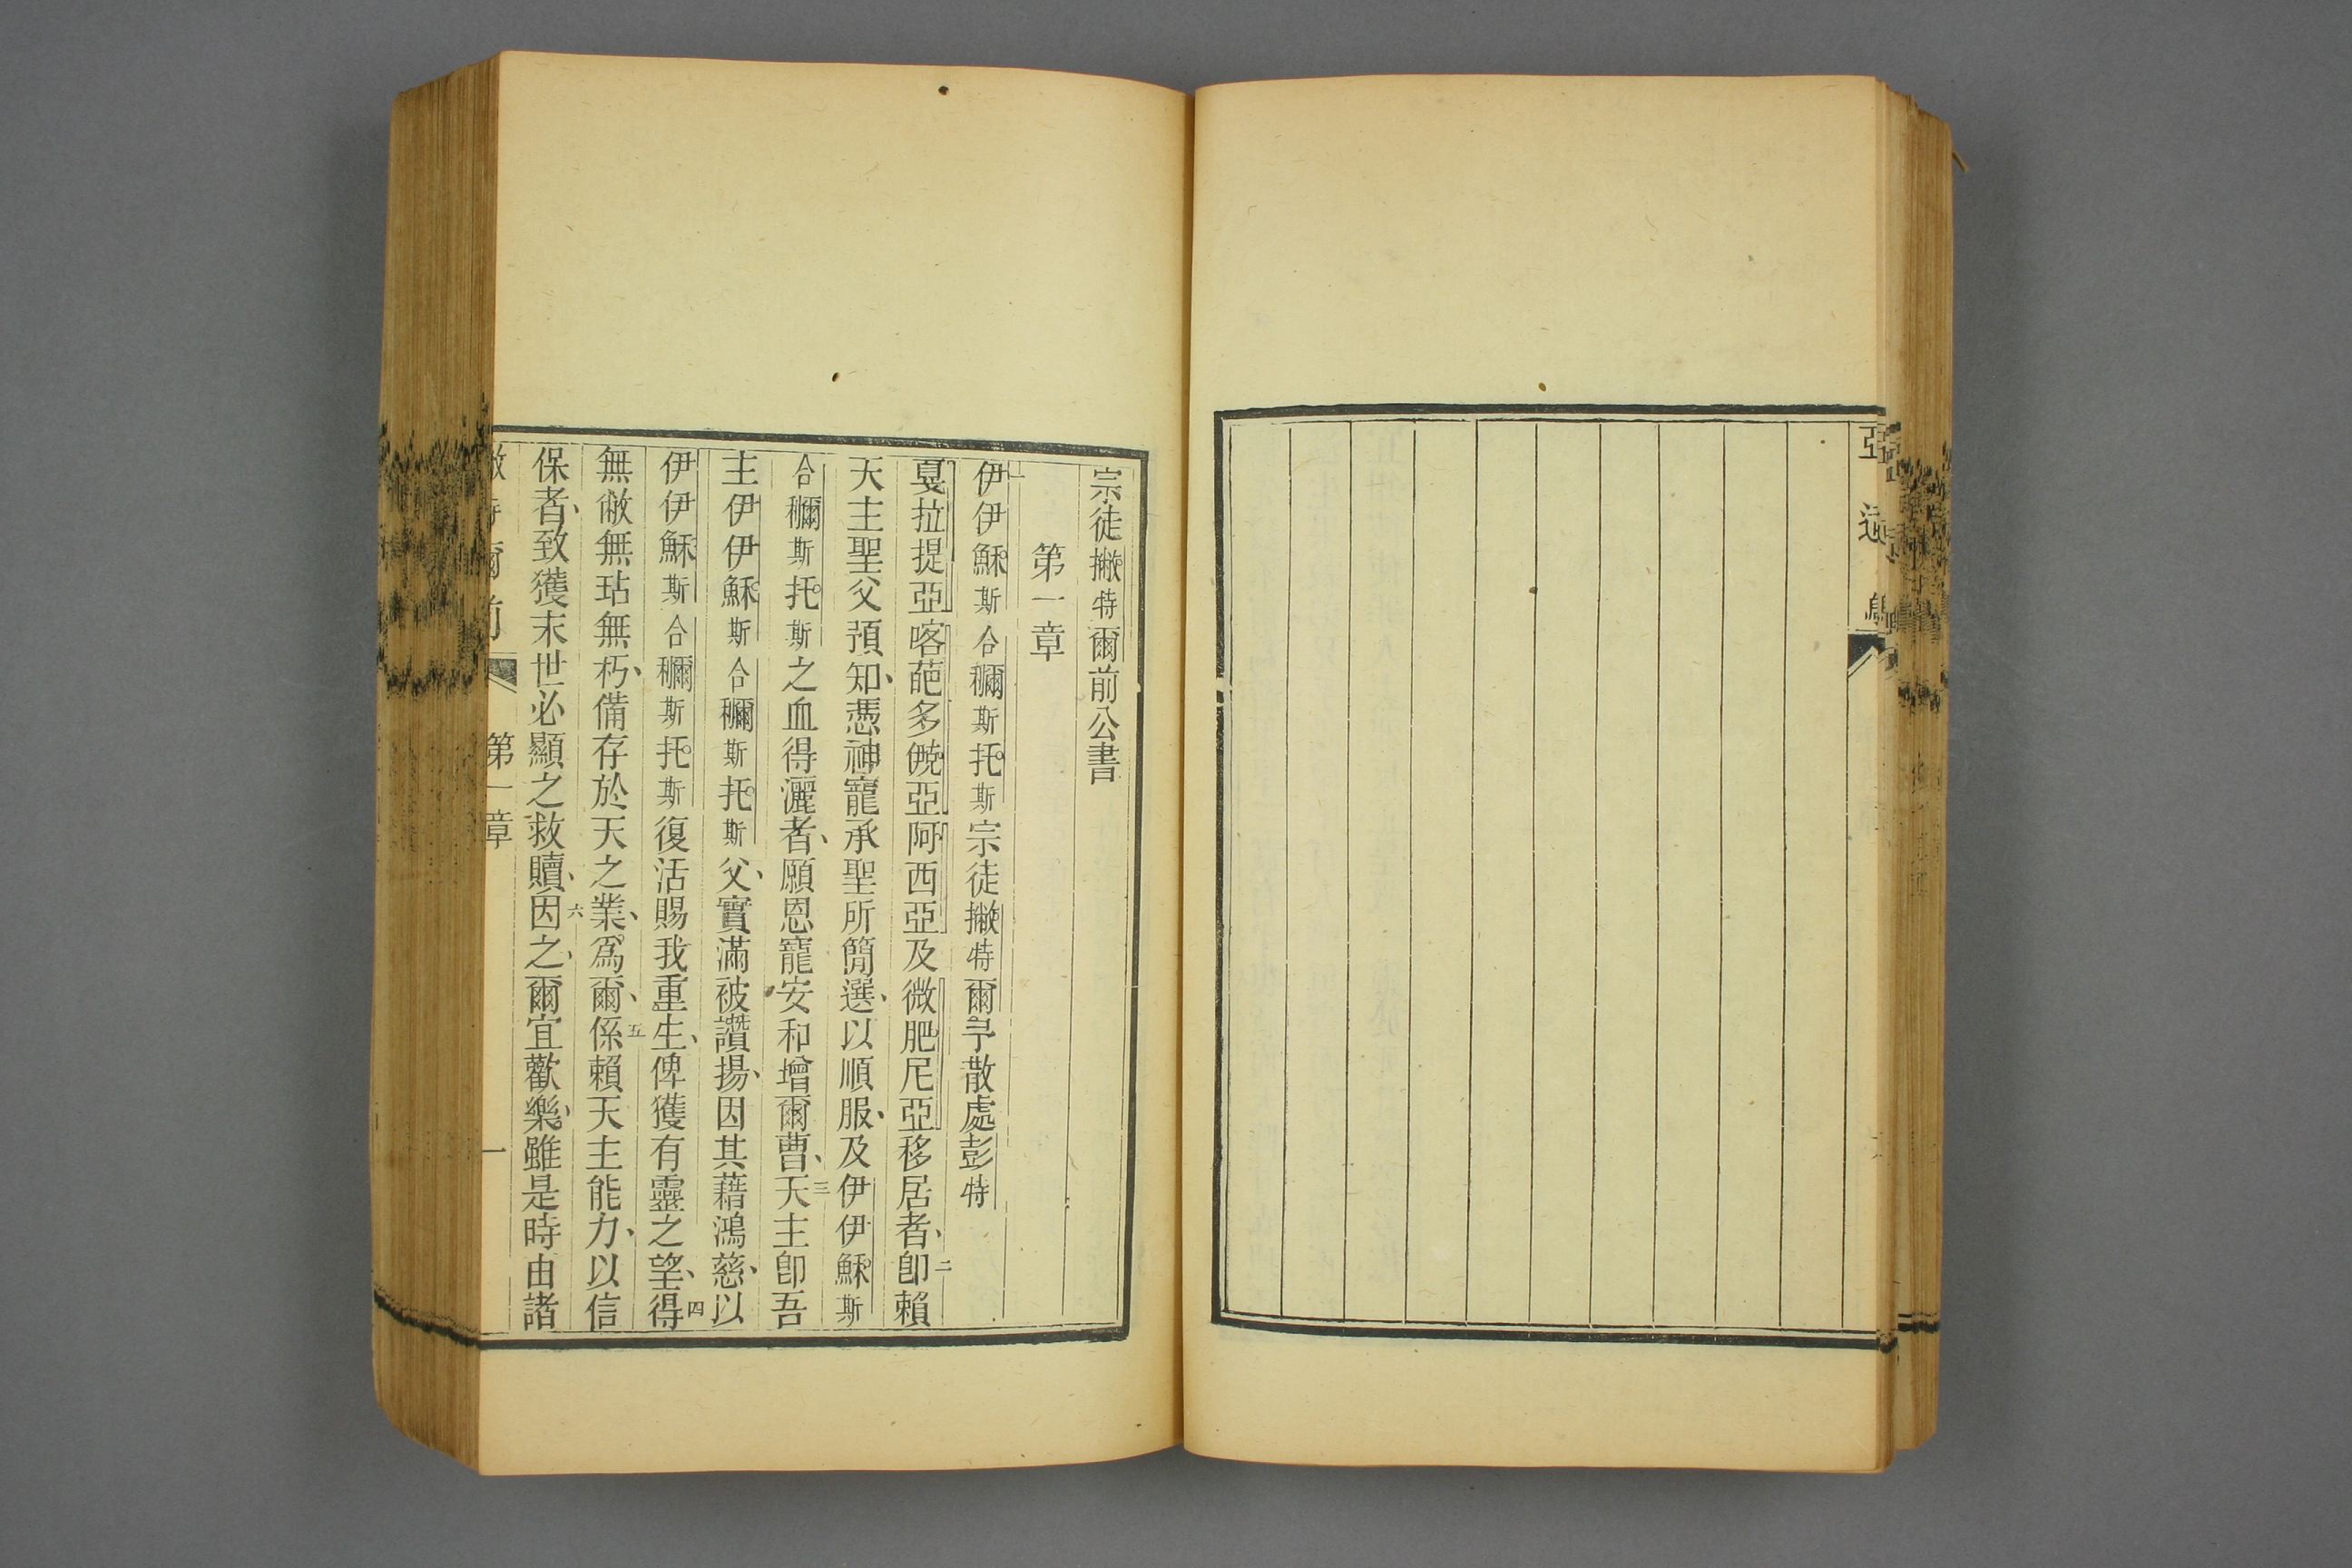 亞
宗徒撇特爾前公書
第一章
一伊伊穌斯合𥡝斯托斯宗徒撇特爾、予散處彭特
戛拉提亞喀葩多𠒇亞阿西亞及微肥尼亞移居者、二卽賴
天主聖父預知、憑神寵承聖所簡選、以順服、及伊伊穌斯
合𥡝斯托斯之血得灑者、願恩寵安和增爾曹、三天主卽吾
主伊伊穌斯合𥡝斯托斯父、實滿被讚揚、因其藉鴻慈、以
伊伊穌斯合𥡝斯托斯復活賜我重生、俾獲有靈之望、四得
無敝無玷無朽、備存於天之業、爲爾、五係賴天主能力、以信
保者、致獲末世必顯之救贖、六因之、爾宜歡樂、雖是時由諸
爾前 第一章 一